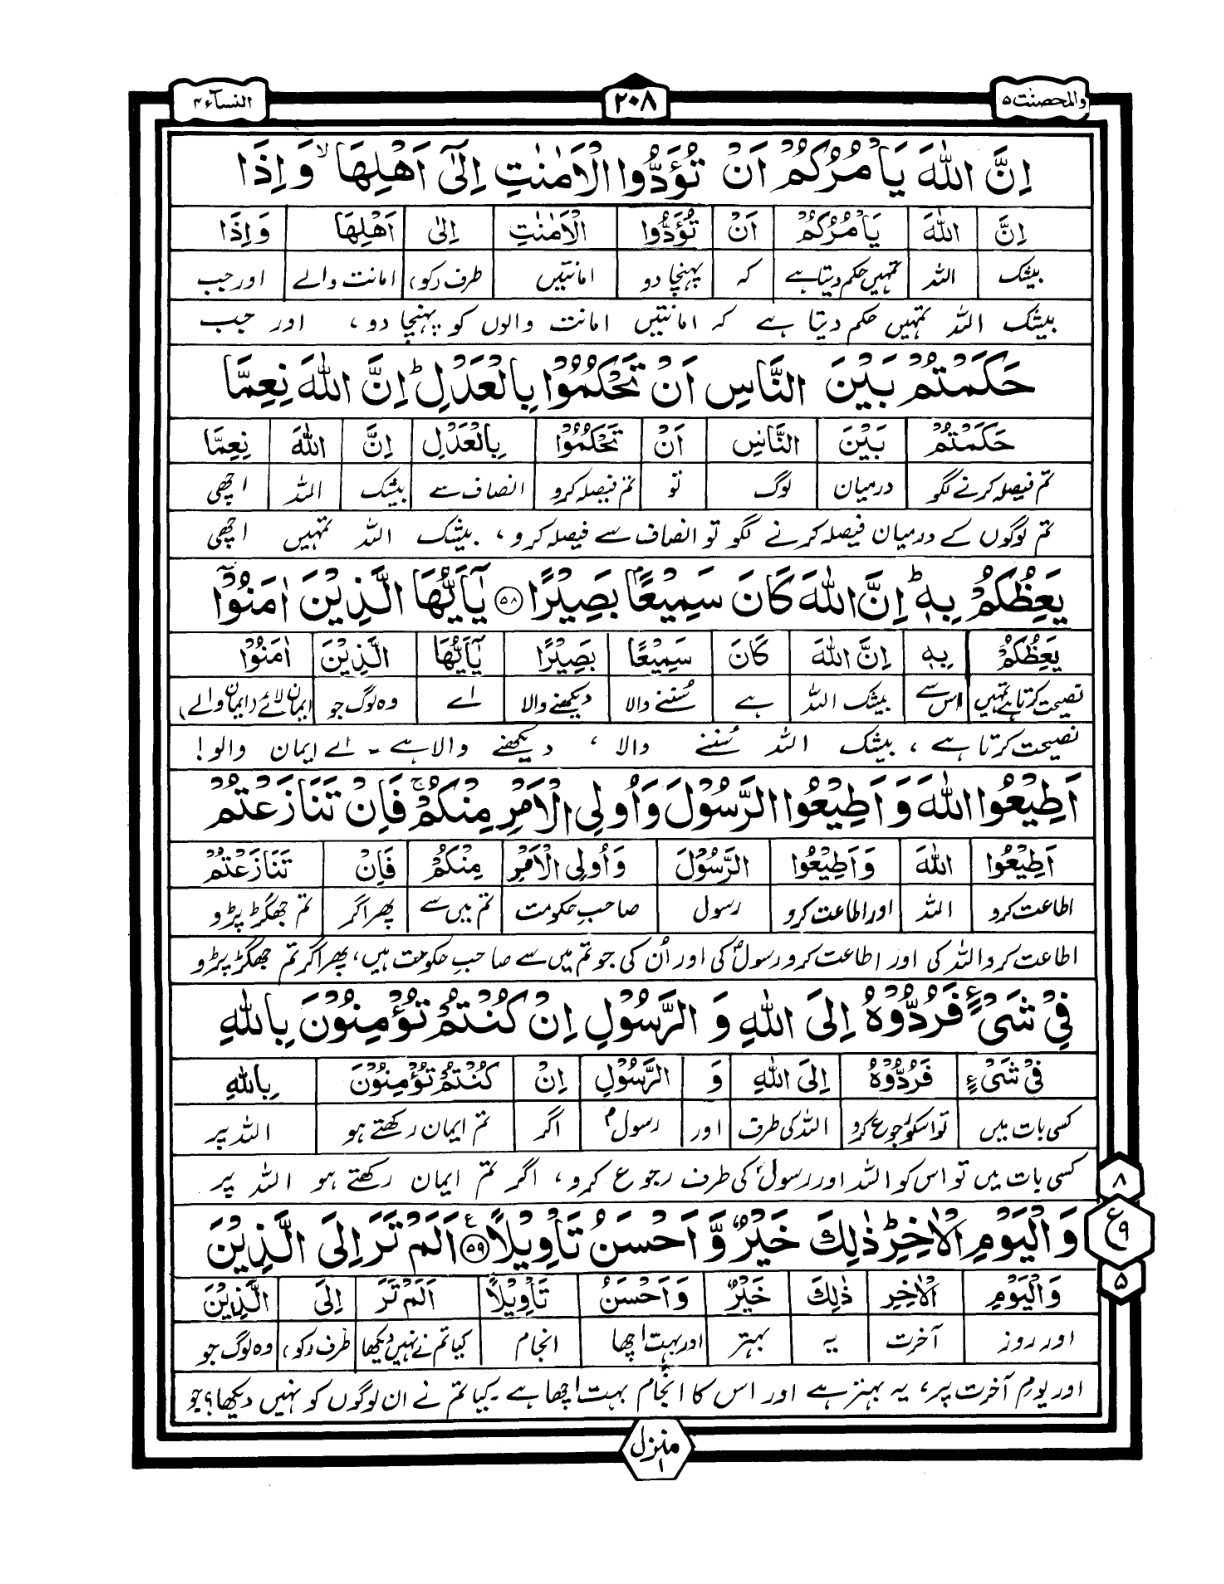 والمحصنٰت ۵
۲۰۸
النسآء ۴
اِنَّ اللّٰهَ يَاْمُرُكُمْ اَنْ تُؤَدُّوا الْاَمٰنٰتِ اِلٰٓى اَهْلِهَا ۙ وَاِذَا
اِنَّ اللّٰهَ يَاْمُرُكُمْ اَنْ تُؤَدُّوا الْاَمٰنٰتِ اِلٰى اَهْلِهَا وَاِذَا
بیشک اللہ تمہیں حکم دیتا ہے کہ پہنچا دو امانتیں طرف (کو) امانت والے اور جب
بیشک اللہ تمہیں حکم دیتا ہے کہ امانتیں امانت والوں کو پہنچا دو، اور جب
حَكَمْتُمْ بَيْنَ النَّاسِ اَنْ تَحْكُمُوْا بِالْعَدْلِ ؕ اِنَّ اللّٰهَ نِعِمَّا
حَكَمْتُمْ بَيْنَ النَّاسِ اَنْ تَحْكُمُوْا بِالْعَدْلِ اِنَّ اللّٰهَ نِعِمَّا
تم فیصلہ کرنے لگو درمیان لوگ تو تم فیصلہ کرو انصاف سے بیشک اللہ اچھی
تم لوگوں کے درمیان فیصلہ کرنے لگو تو انصاف سے فیصلہ کرو، بیشک اللہ تمہیں اچھی
يَعِظُكُمْ بِهٖ ؕ اِنَّ اللّٰهَ كَانَ سَمِيْعًۢا بَصِيْرًا ﴿۵۸﴾ يٰۤاَيُّهَا الَّذِيْنَ اٰمَنُوْۤا
يَعِظُكُمْ بِهٖ اِنَّ اللّٰهَ كَانَ سَمِيْعًا بَصِيْرًا يٰۤاَيُّهَا الَّذِيْنَ اٰمَنُوْا
نصیحت کرتا ہے تمہیں اس سے بیشک اللہ ہے سُننے والا دیکھنے والا اے وہ لوگ جو ایمان لائے (ایمان والے)
نصیحت کرتا ہے، بیشک اللہ سُننے والا، دیکھنے والا ہے۔ اے ایمان والو!
اَطِيْعُوا اللّٰهَ وَ اَطِيْعُوا الرَّسُوْلَ وَ اُولِى الْاَمْرِ مِنْكُمْ ۚ فَاِنْ تَنَازَعْتُمْ
اَطِيْعُوا اللّٰهَ وَ اَطِيْعُوا الرَّسُوْلَ وَ اُولِى الْاَمْرِ مِنْكُمْ فَاِنْ تَنَازَعْتُمْ
اطاعت کرو اللہ اور اطاعت کرو رسول صاحبِ حکومت تم میں سے پھر اگر تم جھگڑ پڑو
اطاعت کرو اللہ کی اور اطاعت کرو رسولؐ کی اور اُن کی جو تم میں سے صاحبِ حکومت ہیں، پھر اگر تم جھگڑ پڑو
فِىْ شَىْءٍ فَرُدُّوْهُ اِلَى اللّٰهِ وَ الرَّسُوْلِ اِنْ كُنْتُمْ تُؤْمِنُوْنَ بِاللّٰهِ
فِىْ شَىْءٍ فَرُدُّوْهُ اِلَى اللّٰهِ وَ الرَّسُوْلِ اِنْ كُنْتُمْ تُؤْمِنُوْنَ بِاللّٰهِ
کسی بات میں تو اسکو رجوع کرو اللہ کی طرف اور رسولؐ اگر تم ایمان رکھتے ہو اللہ پر
کسی بات میں تو اس کو اللہ اور رسولؐ کی طرف رجوع کرو، اگر تم ایمان رکھتے ہو اللہ پر
وَ الْيَوْمِ الْاٰخِرِ ؕ ذٰلِكَ خَيْرٌ وَّ اَحْسَنُ تَاْوِيْلًا ﴿۵۹﴾ ع اَلَمْ تَرَ اِلَى الَّذِيْنَ
وَ الْيَوْمِ الْاٰخِرِ ذٰلِكَ خَيْرٌ وَ اَحْسَنُ تَاْوِيْلًا اَلَمْ تَرَ اِلَى الَّذِيْنَ
اور روز آخرت یہ بہتر اور بہت اچھا انجام کیا تم نے نہیں دیکھا طرف (کو) وہ لوگ جو
اور یومِ آخرت پر، یہ بہتر ہے اور اس کا انجام بہت اچھا ہے۔ کیا تم نے ان لوگوں کو نہیں دیکھا؟ جو
۸
ع ۹
۵
منزل ۱